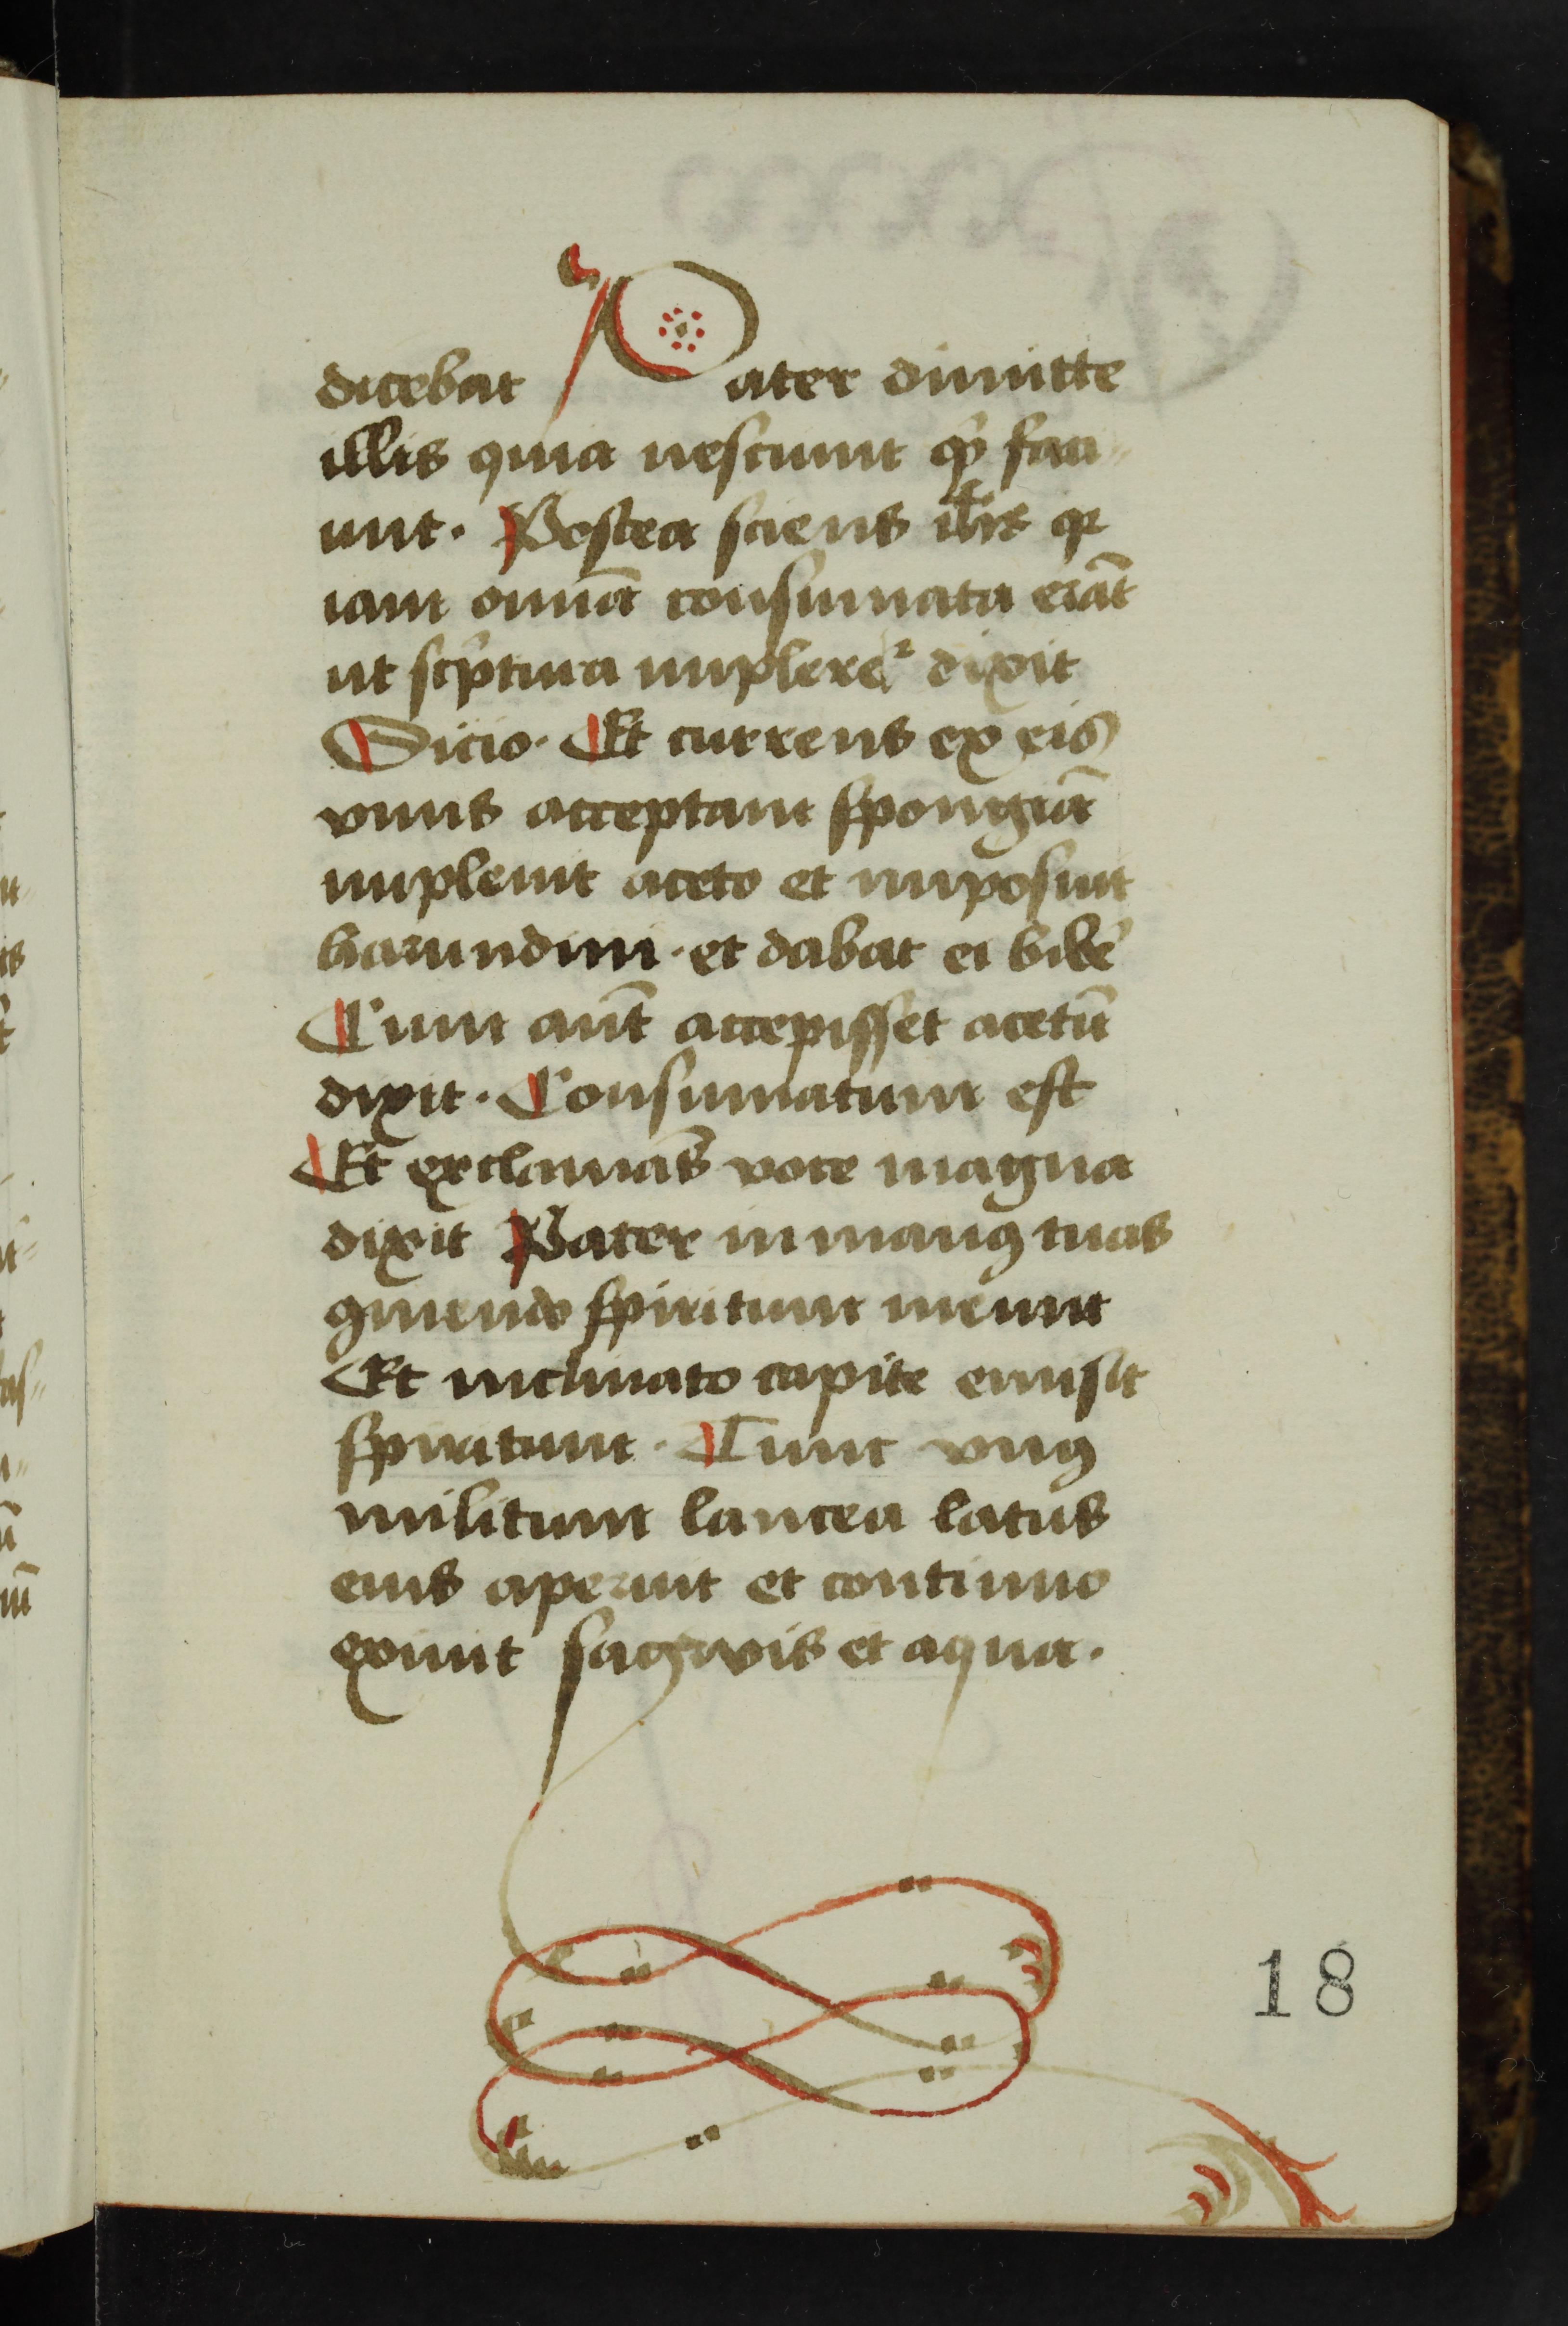 dicebat Pater dimitte
illis quia nesciunt qͥ faci„
unt. Postea sciens ih̄s qꝛ
iam omnīa consumata erāt
ut scͥptura implereꝰ dixit
Sicio. Et currens ex eis
vnus acceptam spongiā
impleuit aceto et imposuit
harundini. et dabat ei bibe᷑
Cum aut̄ accepisset acetū
dixit. Consumatum est
Et exclamās voce magna
dixit Pater in manꝰ tuas
ꝯmendo spiritum meum
Et inclinato capite emisit
spiritum. Tunc vnꝰ
militum lancea latus
eius aperuit et continuo
exiuit sagwis et aqua.
18